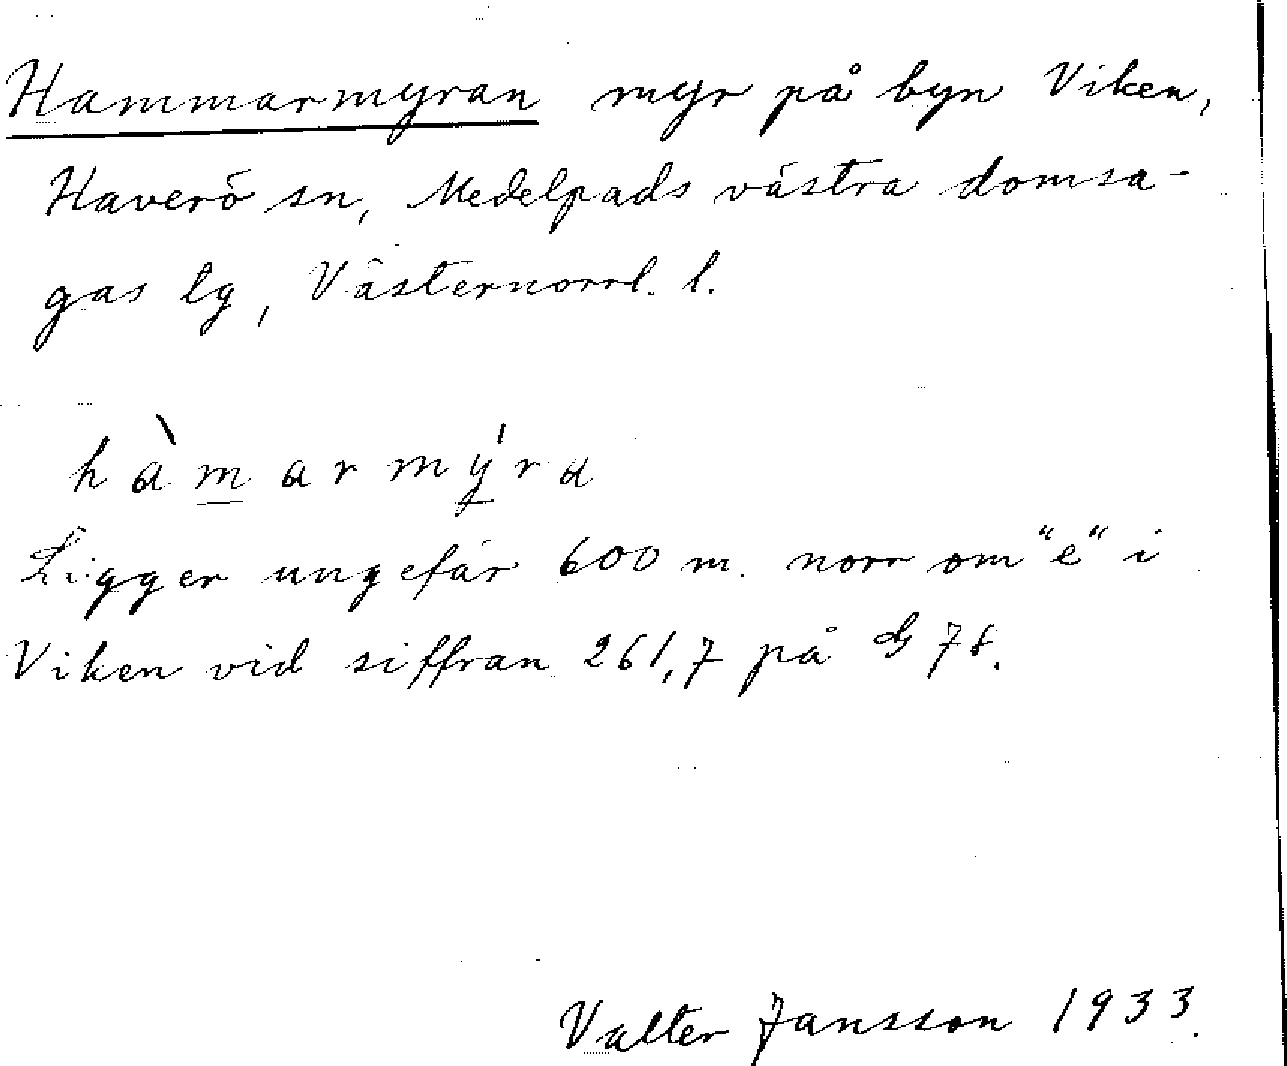 Hammarmyran myr på byn Viken,
Haverö sn, Medelpads västra domsa-
gas lg, Västernorrl. l.
hàmarmýra
Ligger ungefär 600 m. norr om "e" i
Viken vid siffran 261,7 på
Valter Jansson 1933.